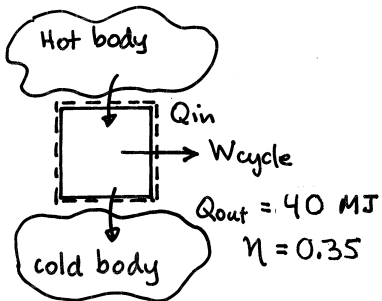 Hot body
Qin
Wcycle
Qout = 40 MJ
η = 0.35
cold body